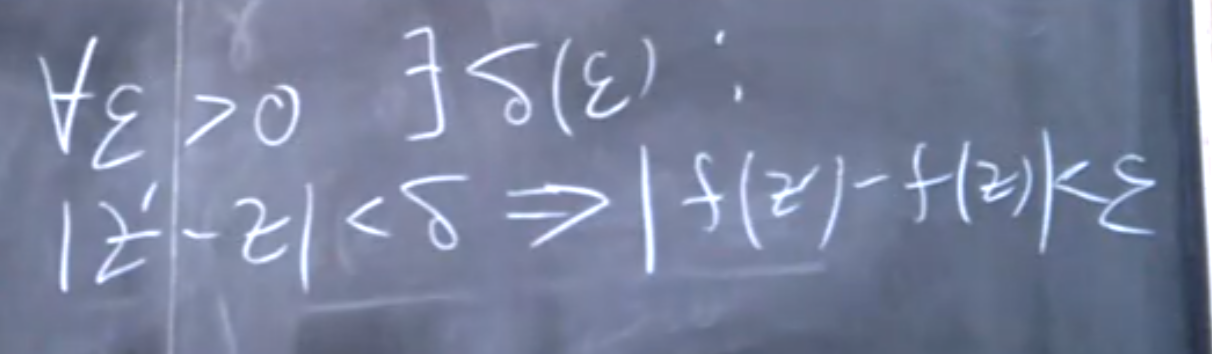 ∀ε > 0 ∃ δ(ε) :
|z' - z| < δ ⇒ |f(z') - f(z)| < ε